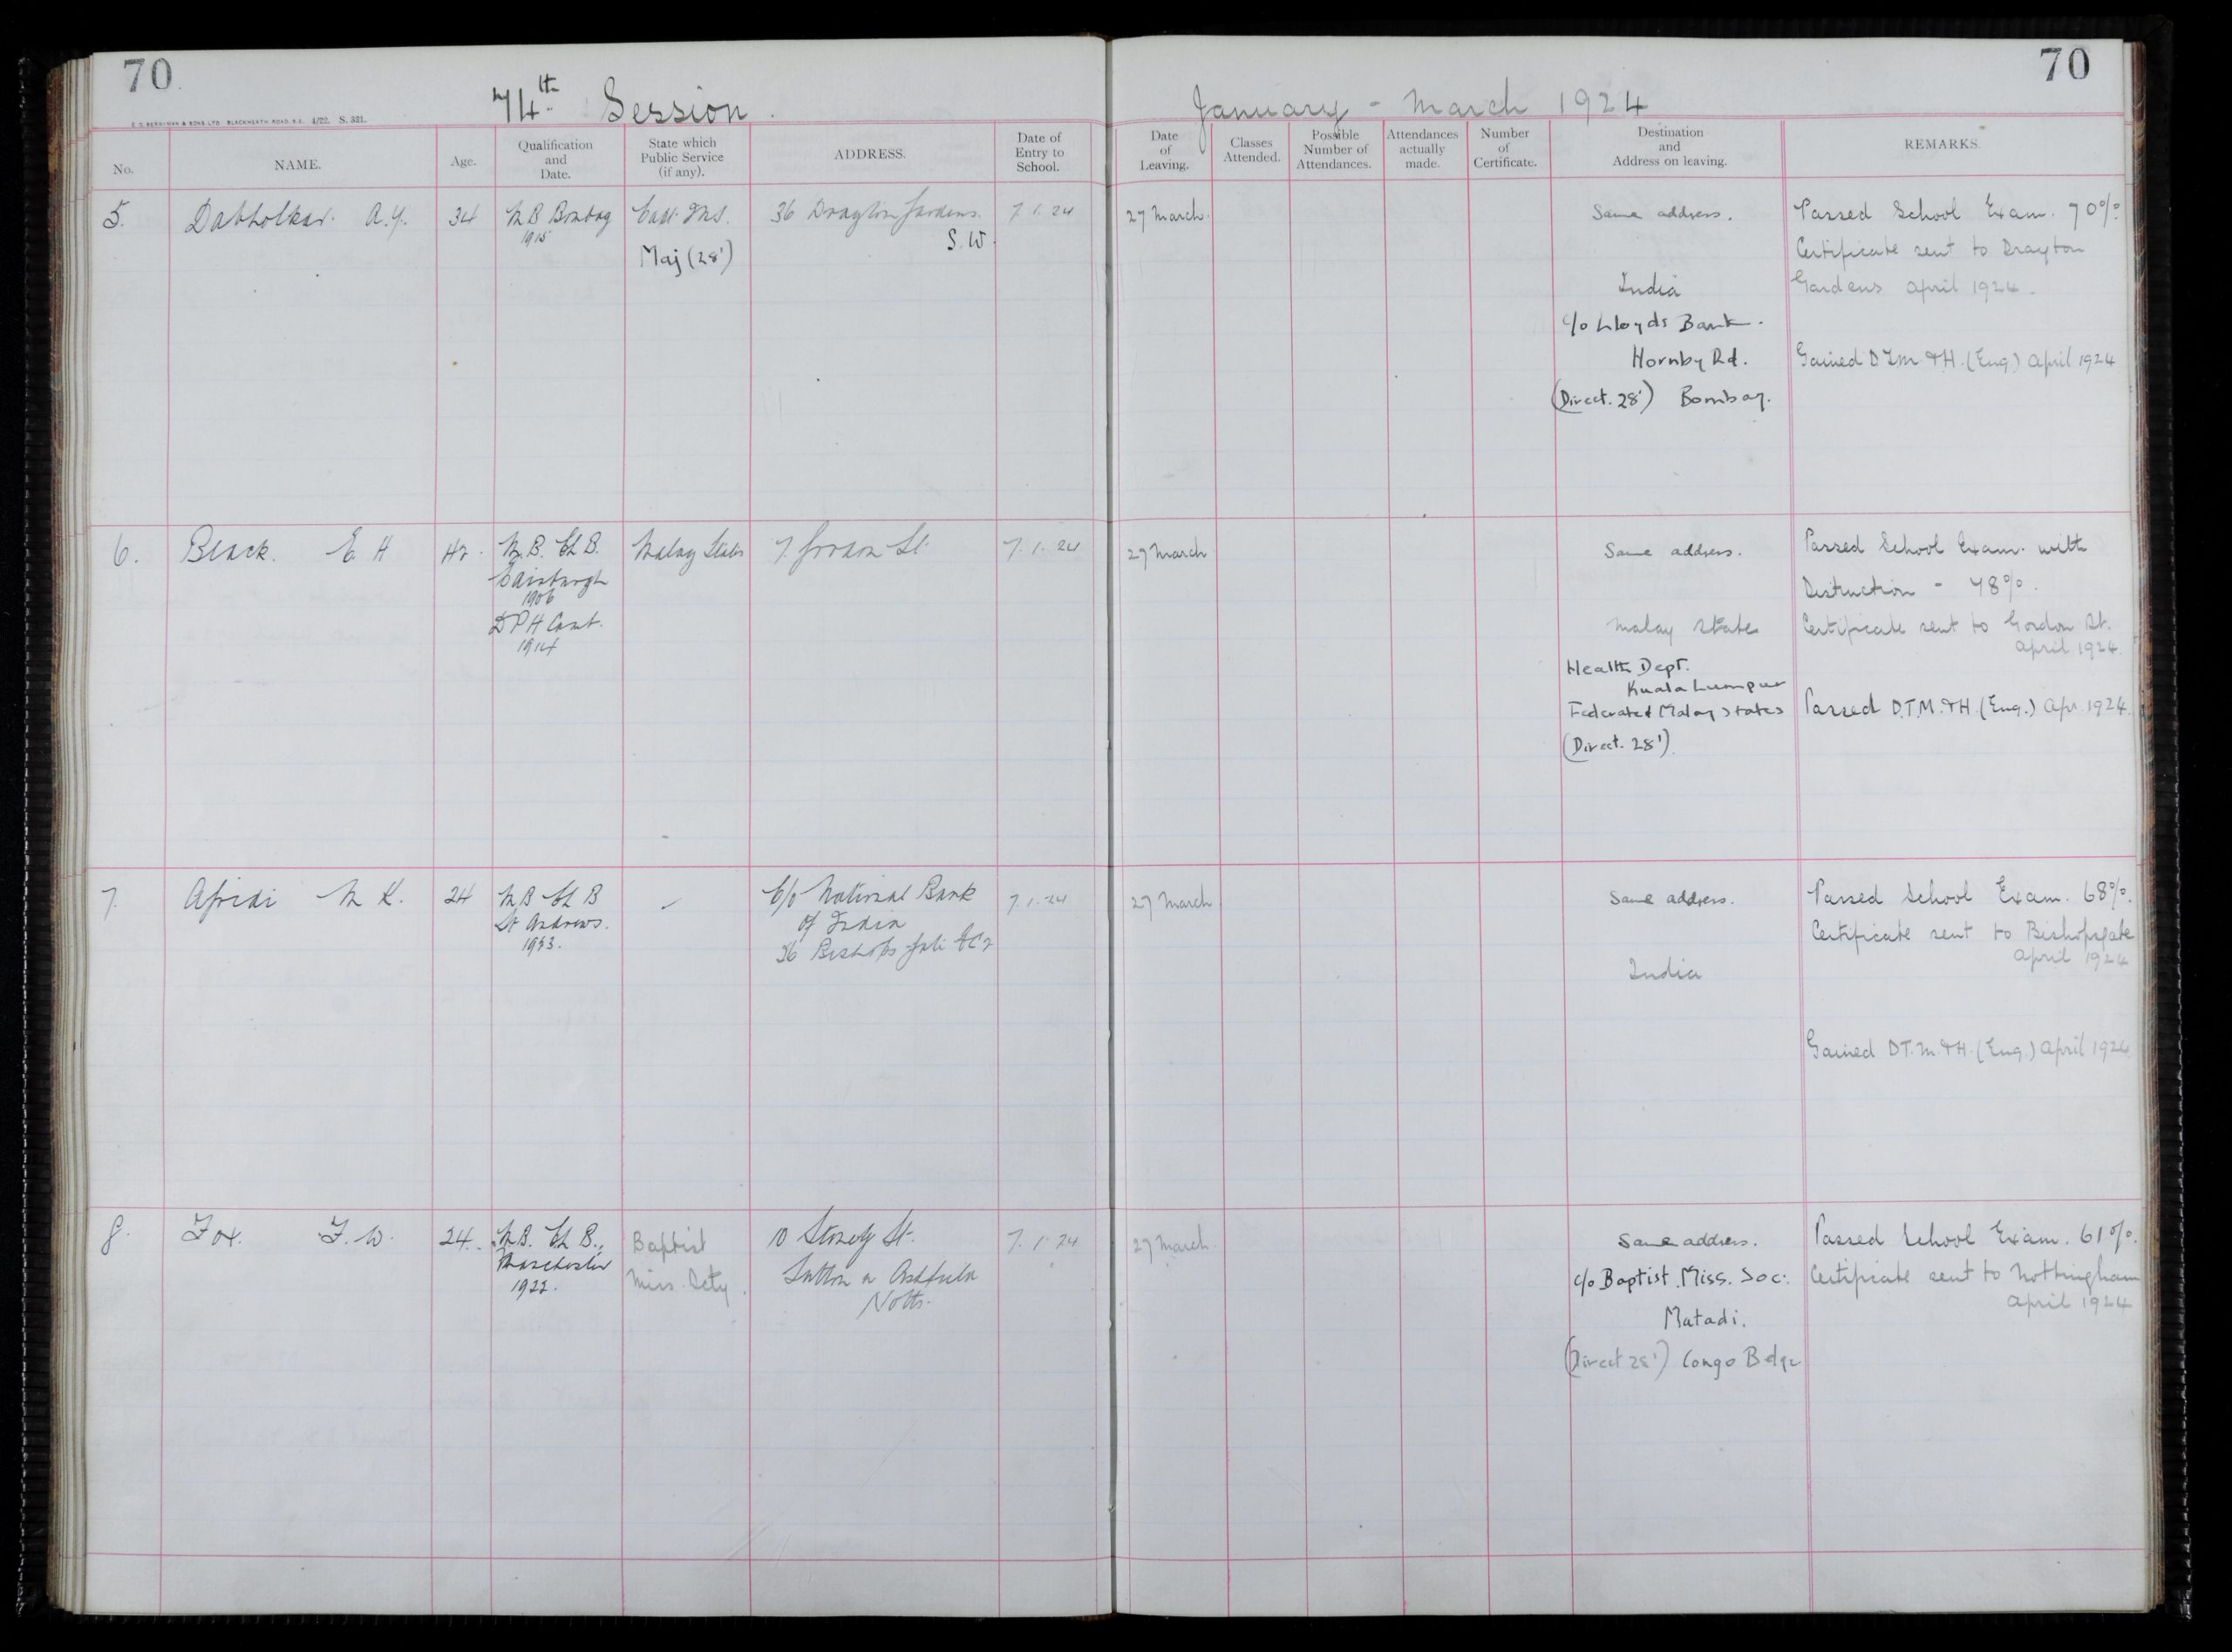 70
70
74th Session.
January - March 1924
E. C. BERRYMAN & SONS, LTD. BLACKHEATH ROAD, S.E. 4/22. S. 321.
No.
NAME.
Age.
Qualification
and
Date.
State which
Public Service
(if any).
ADDRESS.
Date of
Entry to
School.
Date
of
Leaving.
Classes
Attended.
Possible
Number of
Attendances.
Attendances
actually
made.
Number
of
Certificate.
Destination
and
Address on leaving.
REMARKS.
5.
Dabholkar. A.Y.
34
M B Bombay
1915
Capt. IMS.
Maj (28')
36 Drayton Gardens.
S.W.
7.1.24
27 March.
Same address.
India
c/o Lloyds Bank.
Hornby Rd.
(Direct. 28') Bombay.
Passed School Exam. 70%
Certificate sent to Drayton
Gardens April 1924.
Gained D.T.M. & H. (Eng.) April 1924
6.
Black. E H
42.
M.B. Ch B.
Edinburgh
1906
DPH Cant.
1914
Malay States
7. Gordon St.
7.1.24
27 March
Same address.
Malay States
Health Dept.
Kuala Lumpur
Federated Malay States
(Direct. 28')
Passed School Exam. with
Distinction - 78%.
Certificate sent to Gordon St.
April 1924.
Passed D.T.M. & H. (Eng.) Apr. 1924.
7.
Afridi M K.
24
M B Ch B
St Andrews.
1923.
C/o National Bank
of India
26 Bishopsgate EC2
7.1.24
27 March
Same address.
India
Passed School Exam. 68%.
Certificate sent to Bishopsgate
April 1924
Gained D.T.M. & H. (Eng.) April 1924
8.
Fox. F. W.
24.
M.B. Ch B.,
Manchester
1922.
Baptist
Miss. Scty.
10 Stoney St.
Sutton in Ashfield
Notts.
7.1.24
27 March.
Same address.
c/o Baptist Miss. Soc.
Matadi.
(Direct 28') Congo Belge
Passed School Exam. 61%.
Certificate sent to Nottingham
April 1924